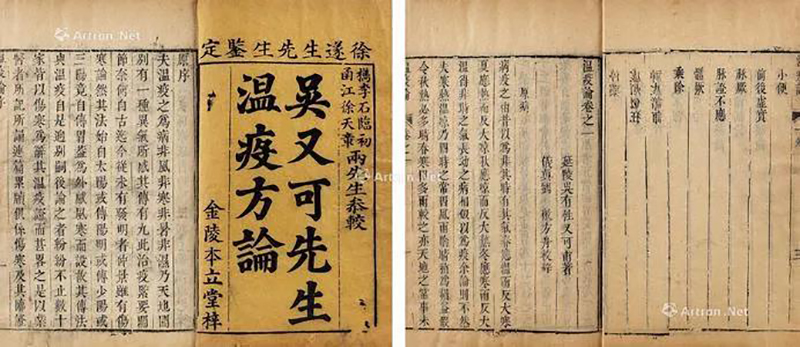 徐生先生鑒定
樵李石臨初
函江徐天章
兩先生參較
吳又可先生
溫疫方論
金陵本立堂梓
原序
夫溫疫之爲病非風非寒非暑非濕乃天地間
別有一種異氣所感其傳有九此治疫緊要關
節奈何自古迄今從未有發明者仲景雖有傷
寒論然其法始自太陽或傳陽明或傳少陽或
三陽竟自傳胃蓋爲外感風寒而設故其傳法
與溫疫自是迥別嗣後論之者紛紛不止數十
家皆以傷寒爲辭其溫疫證而甚畧之是以業
醫者所記所誦連篇累牘俱係傷寒及其臨症
小便
前後虛實
脈厥
脈證不應
體厥
乘除
溫疫論卷之一
延陵吳有性又可甫著
儀真劉方舟校梓
原病
病疫之由昔以爲非其時有其氣春應溫而反大寒
夏應熱而反大涼秋應涼而反大熱冬應寒而反大
溫得非時之氣長幼之病相似以爲疫余論則不然
夫寒熱溫涼乃四時之常因風雨陰晴稍爲損益假
令秋熱必多晴春寒因多雨較之亦天地之常事未
Artron.Net
Artron.Net
Artron.Net
Artron.Net